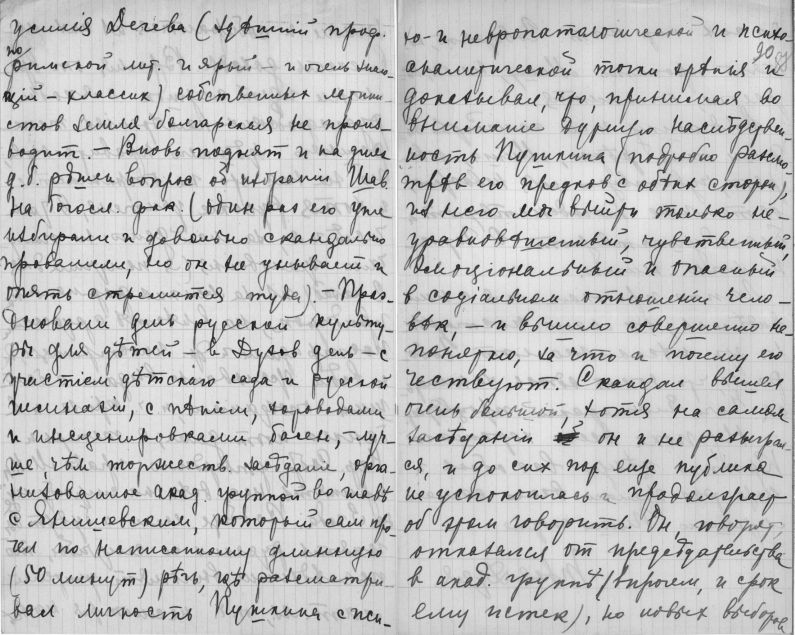 усилія Дечева (здѣшній проф.
по
римской лит. и ярый – и очень
щій – классик) собственных латини-
стов земля болгарская не произ-
водит. – Вновь поднят и на днях
д. б. рѣшен вопрос об избраніи Шав.
на богосл. фак. (один раз его уже
избирали и довольно скандально
провалили, но он не унывает и
опять стремится туда). – Праз-
дновали день русской культу-
ры для дѣтей – в Духов день – с
участіем дѣтскаго сада и русской
гимназіи, с пѣніем, хороводами
и инсценировками басен, – луч-
ше, чѣм торжеств. засѣданіе, орга-
низованное акад. группой во главѣ
с Янишевским, который сам про-
чел по написанному длинную
(50 минут) рѣчь, гдѣ разсматри-
вал личность Пушкина с пси-
хо- и невропатологической и психо-
90
аналитической точки зрѣнія и
доказывал, что, принимая во
вниманіе дурную наслѣдствен-
ность Пушкина (подробно разсмо-
трѣв его предков с обѣих сторон),
из него мог выйти только не-
уравновѣшенный, чувственный,
эмоціональный и опасный
в соціальном отношеніи чело-
вѣк, – и вышло совершенно не-
понятно, за что и почему его
чествуют. Скандал вышел
очень большой, хотя на самом
засѣданіи он и не разыграл-
ся, и до сих пор еще публика
не успокоилась и продолжает
об этом говорить. Он, говорят,
отказался от предсѣдательства
в акад. группѣ (впрочем, и срок
ему истек), но новых выборов